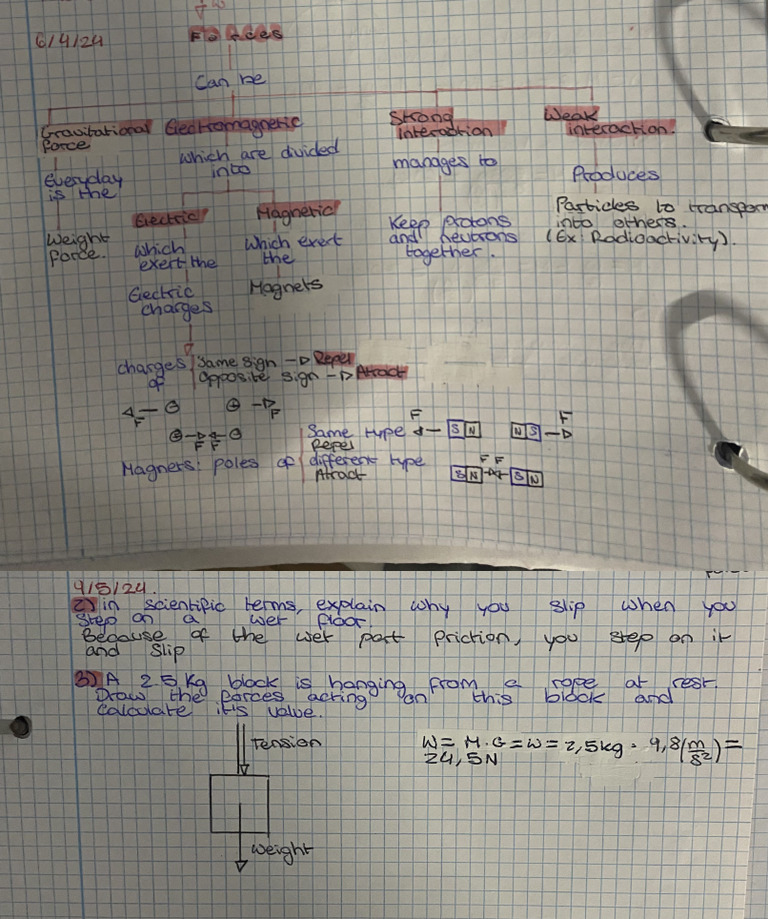 6/4/24
Forces
Can be
Gravitational force
Electromagnetic
Strong interaction
Weak interaction.
Everyday is the
which are divided into
manages to
Produces
Weight force.
Electric
Magnetic
Keep protons and neutrons together.
Particles to transform into others. (Ex: Radioactivity).
which exert the
Which exert the
Electric charges
Magnets
charges of
Same sign → Repel
opposite sign → Atract
F
F
F F
Magnets: poles of
Same type
Repel
different type
Atract
F
S N
N S
F
F F
S N
S N
4/5/24.
2) in scientific terms, explain why you slip when you
step on a wet floor.
Because of the wet part friction, you step on it
and slip
3) A 2.5 Kg block is hanging from a rope at rest.
Draw the forces acting on this block and
calculate it's value.
Tension
W= M.G = W = 2,5kg · 9,8(m/s²) =
24,5N
Weight